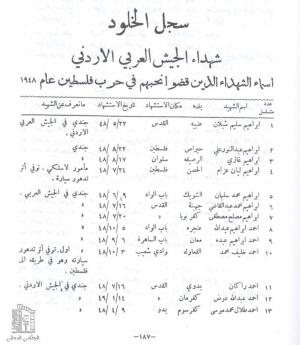 سجل الخلود
شهداء الجيش العربي الاردني
اسماء الشهداء الذين قضوا نحبهم في حرب فلسطين عام ١٩٤٨
عدد متسلسل اسم الشهيد بلده مكان الاستشهاد تاريخ الاستشهاد ما نعرف عن الشهيد
١ ابراهيم سليم شبلان عنبه القدس ٤٨/٥/٢٢ جندي في الجيش العربي
الاردني .
٢ ابراهيم عبد النور علي فلسطين جندي
٣ ابراهيم غازي الرصيفه سلوان ٤٨/٨/١٧ »
٤ ابراهيم ليان عزام الحصن فلسطين ٤٨/٧/٢٤ مأمور لاسلكي . توفي أثر
تدهور سيارة .
٥ ابراهيم محمد سليمان الشوبك باب الواد ٤٨/٦/٩ جندي في الجيش العربي .
٦ ابراهيم محمد عبد القاضي جهينة القدس ٤٨/٧/١٦ »
٧ ابراهيم مصلح مصطفى كفر يوبا » ٤٨/٧/٢٠ »
٨ احمد ابراهيم عبد الله عنجره باب الواد ٤٨/١٠/٥ »
٩ احمد ابراهيم عبده معان باب الساهرة ٤٨/٩/٦ »
١٠ احمد خليف محمد وادي شعيب ٤٨/١٠/٣ » اول . توفي أثر تدهور
سيارته وهو في طريقه الى
فلسطين .
١١ احمد راكان بدوي القدس ٤٨/٧/١٦ جندي في الجيش الاردني .
١٢ احمد عبد الله عوض كفرمان » ٤٩/١/١٤ »
١٣ احمد طلال محمد موسى كفرسوم بدو ٤٨/٤/٩ »
—١٨٧—